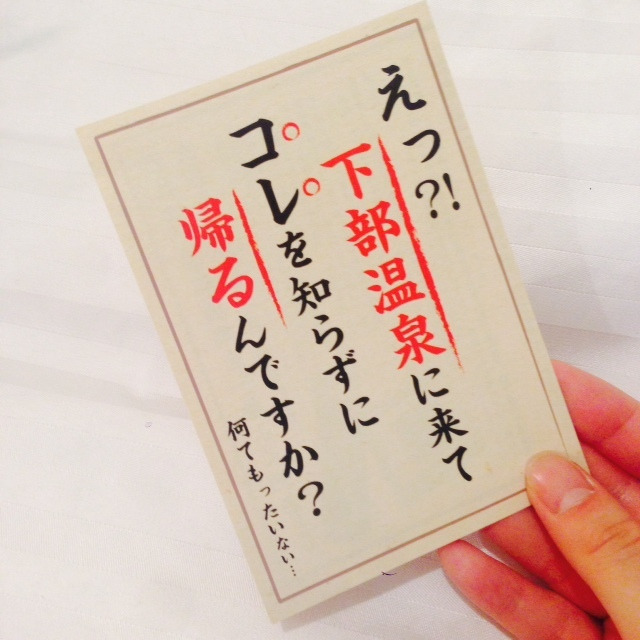 えっ?!
下部温泉に来て
コレを知らずに
帰るんですか?
何てもったいない…